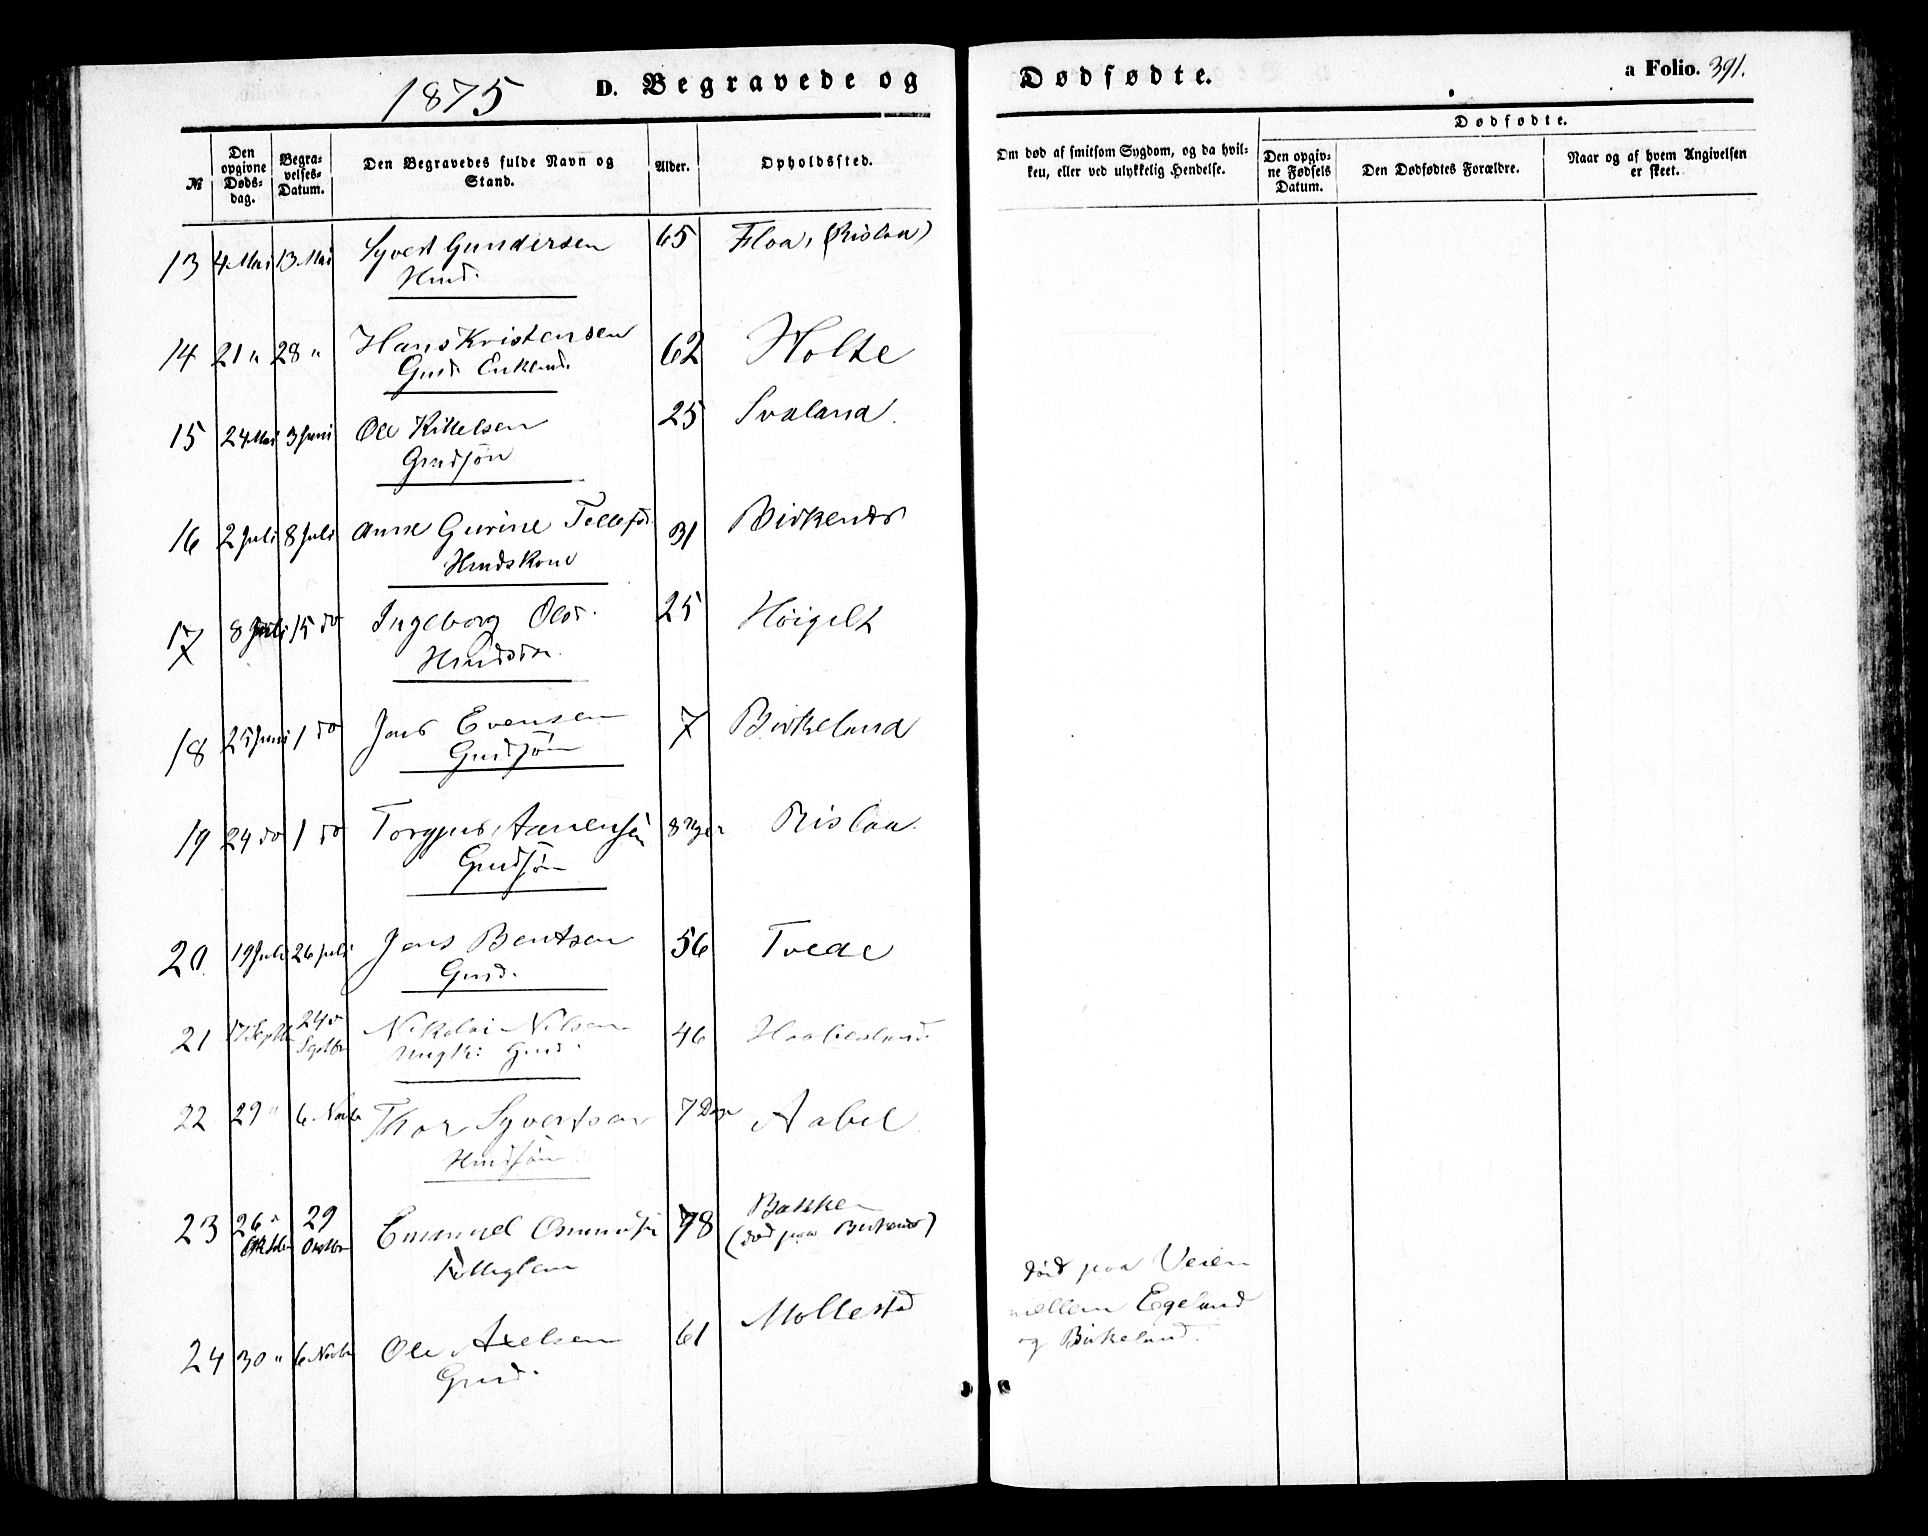 1875 D. Begravede og Dødfødte. a Folio. 391.
№ Den opgivne Døds-dag. Begra-velses-Datum. Den Begravedes fulde Navn og Stand. Alder. Opholdssted. Om død af smitsom Sygdom, og da hvil-ken, eller ved ulykkelig Hendelse. Dødfødte. Den opgiv-ne Fødsels Datum. Den Dødfødtes Forældre. Naar og af hvem Angivelsen er skeet.
13 4 Mai 13 Mai Syvert Gundersen 65 Floa, (Rislaa)
Hmd.
14 21 " 28 " Hans Kristensen 62 Holte
Gmd. Enkemd.
15 24 Mai 3 Juni Ole Kittelsen 25 Svaland.
Gmdsøn
16 2 Juli 8 Juli Anne Gurine Tellefsd. 31 Birkenes
Hmdskone
17 8 Juli 15 do Ingeborg Olsd. 25 Høigilt
18 25 Juni 1 do Jens Evensen 7 Birkeland
Gmdsøn
19 24 do 1 do Torgjus Aanensen 8 Uger Rislaa.
Gmdsøn
20. 19 Juli 26 Juli Jens Bentsen 56 Tvede
Gmd.
21 17 Septbr 24 Septbr Nikolai Nilsen 46
Ungk: Gmd.
22 29 " 6. Novbr Thor Syvertsen 7 Dage Aabel
Hmdsøn
23 26 Oktbr 29 Osmundsen 78 Bakken
(død paa Birkenes)
24 30 " 6 Novbr Ole Axelsen 61 Mollestad
Gmd.
død paa Veien
mellem Egeland
og Birkeland.